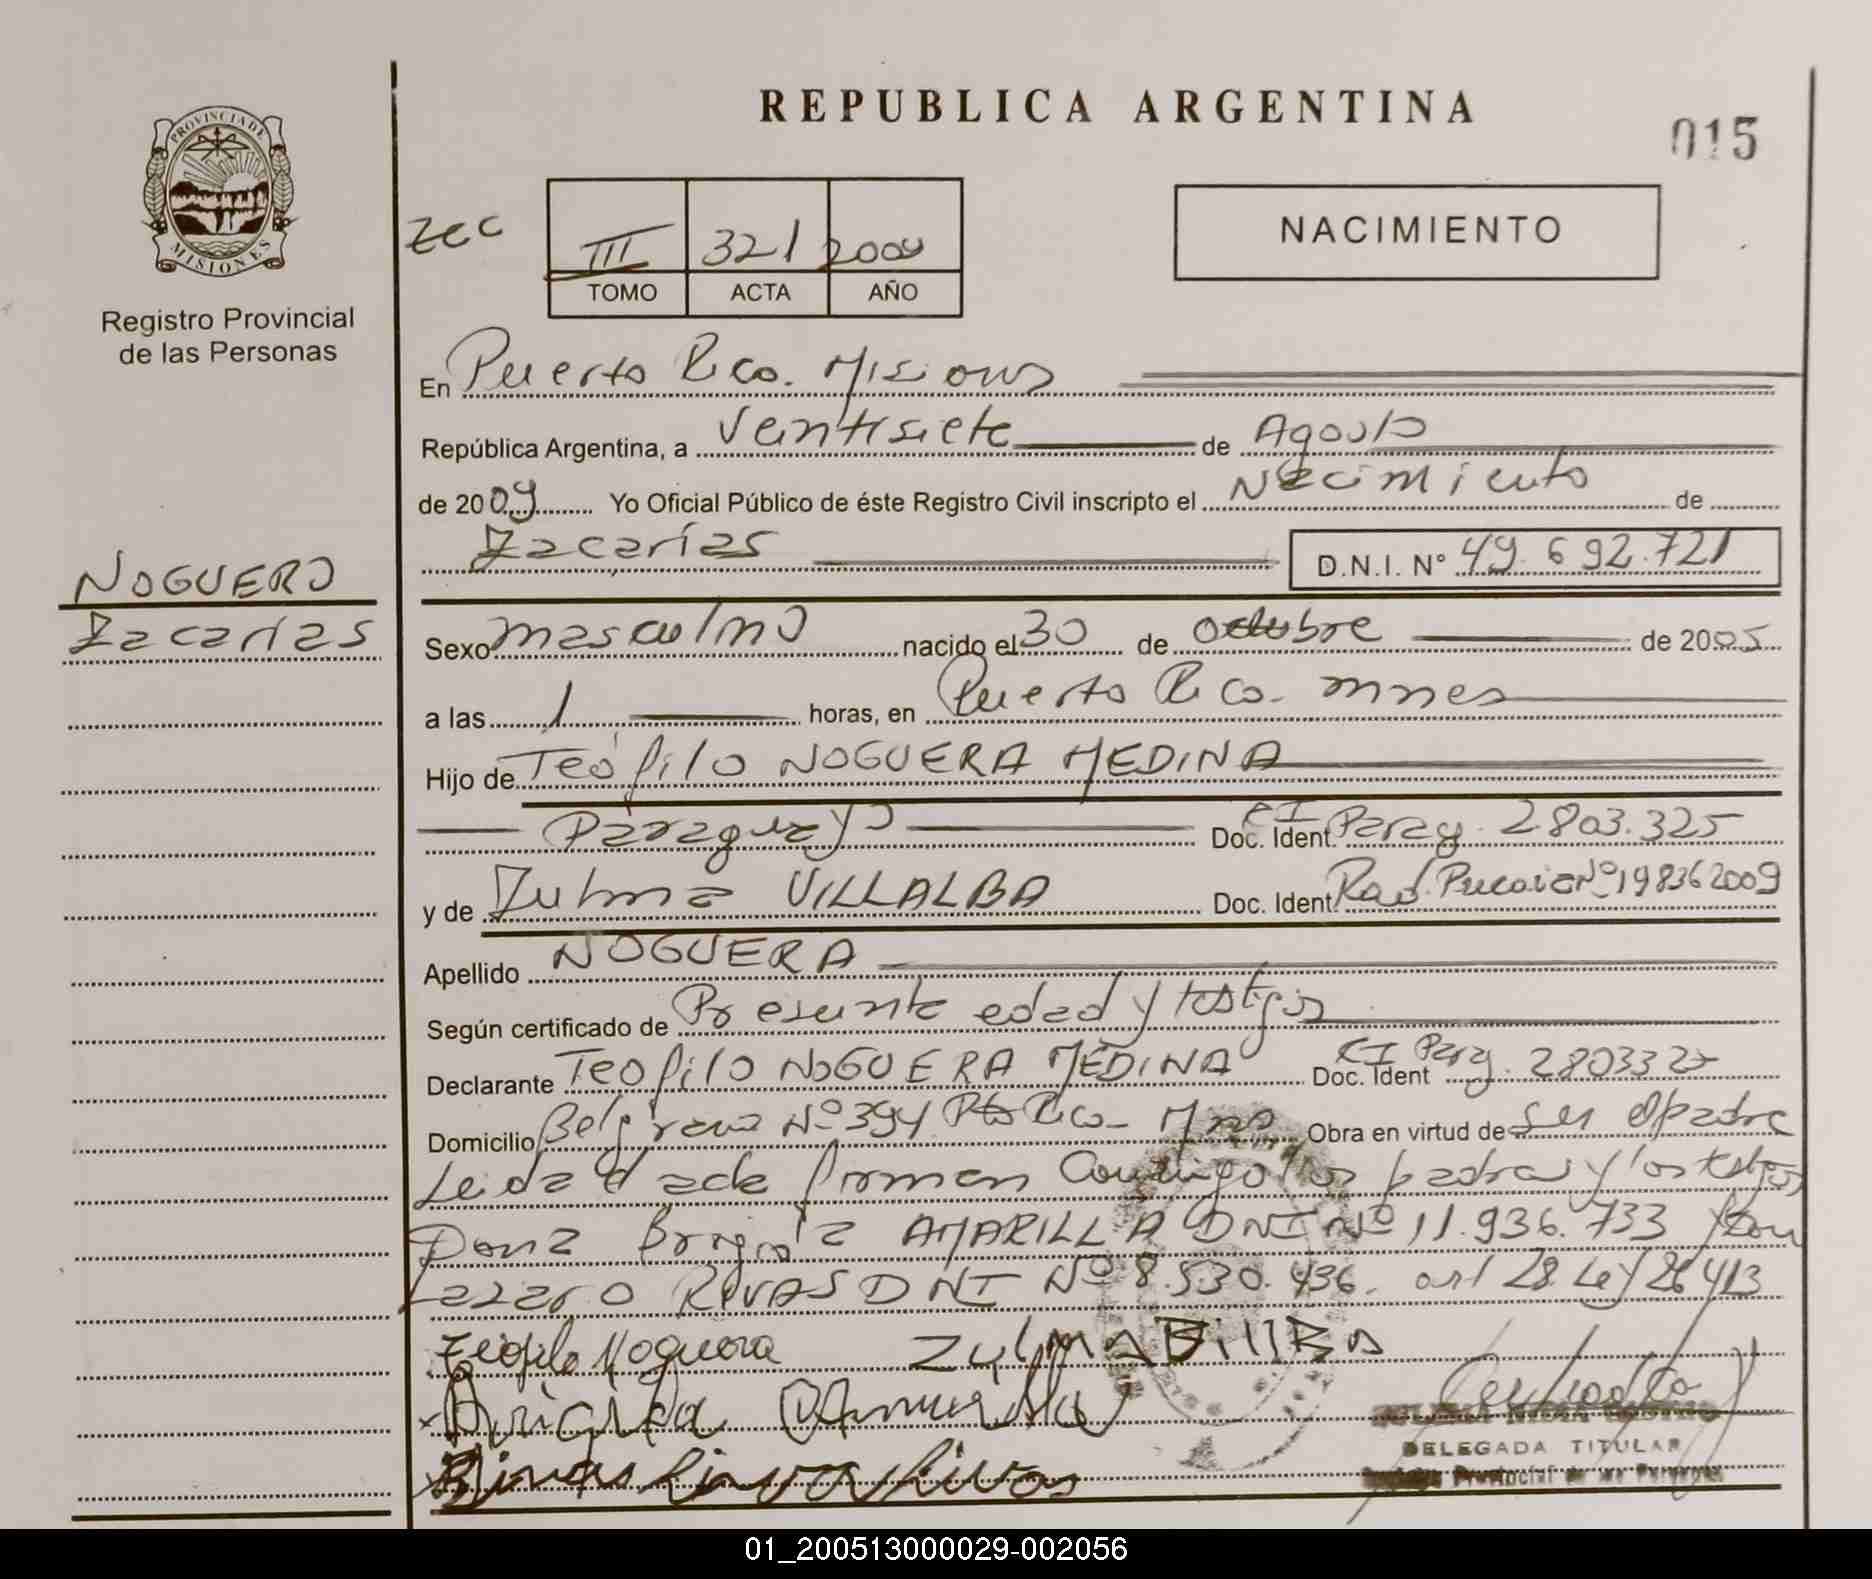 REPUBLICA ARGENTINA
015
PROVINCIA DE
MISIONES
Registro Provincial
de las Personas
III 321 2009
TOMO ACTA AÑO
NACIMIENTO
En Puerto Rico. Misiones
República Argentina, a Veintisiete de Agosto
de 2009 Yo Oficial Público de éste Registro Civil inscripto el Nacimiento de
Zacarías
D.N.I. N° 49.692.721
NOGUERO
Zacarías
Sexo masculino nacido el 30 de Octubre de 2005
a las 1 horas, en Puerto Rico. mnes
Hijo de Teófilo NOGUERA MEDINA
Paraguayo Doc. Ident. CI Parag. 2.803.325
y de Zulma VILLALBA Doc. Ident. Rad. Precaria Nº 198362009
Apellido NOGUERA
Según certificado de Presunta edad y testigos
Declarante Teofilo NOGUERA MEDINA Doc. Ident CI Parag. 2803325
Domicilio Belgrano Nº 394 Pto Rico- Mnes Obra en virtud de ser el padre
Leida el acta firman Conmigo los padres y los testigos
Doña Brigida AMARILLA DNI Nº 11.936.733 y Don
Lazaro RIVAS DNI Nº 8.530.436. art 28. Ley 26413
Teofilo Noguera ZulmA BillBA
DELEGADA TITULAR
Provincial de las Personas
01_200513000029-002056